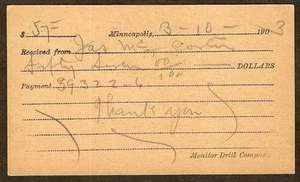 $ 57- Minneapolis, 3-10- 1903
Received from Jas Mc
Fifty Seven 00/100 DOLLARS
Payment 39322-6
Thank you
Monitor Drill Company